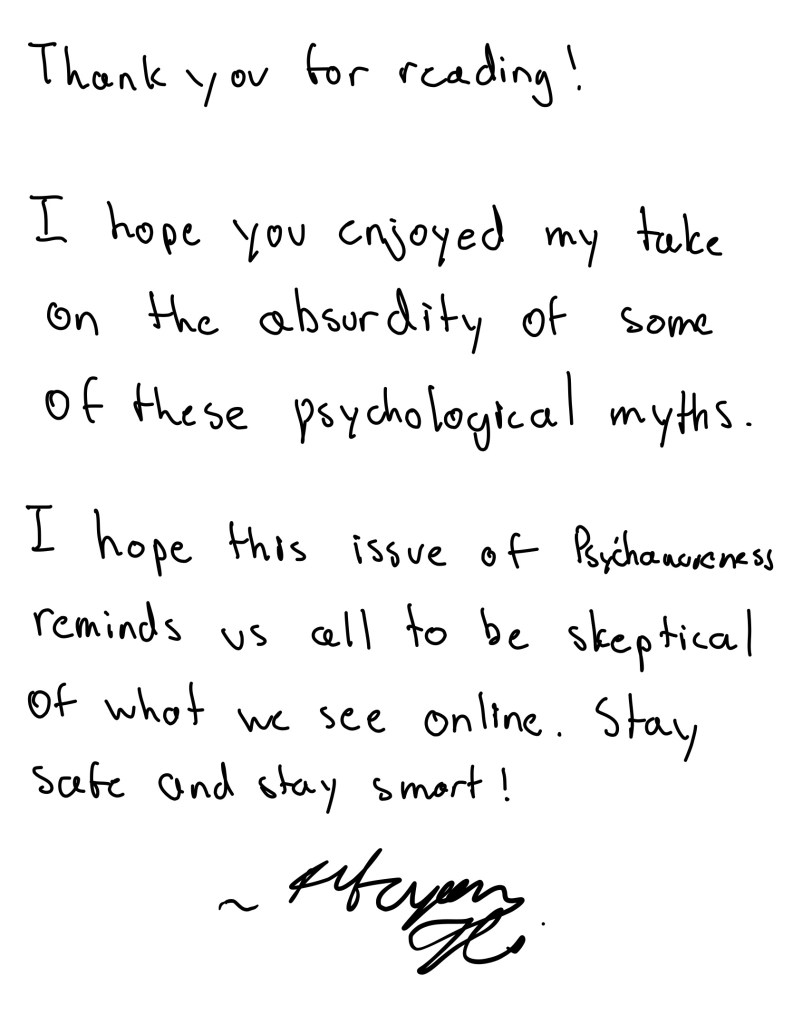 Thank you for reading!
I hope you enjoyed my take
on the absurdity of some
of these psychological myths.
I hope this issue of Psychawareness
reminds us all to be skeptical
of what we see online. Stay
safe and stay smart!
~